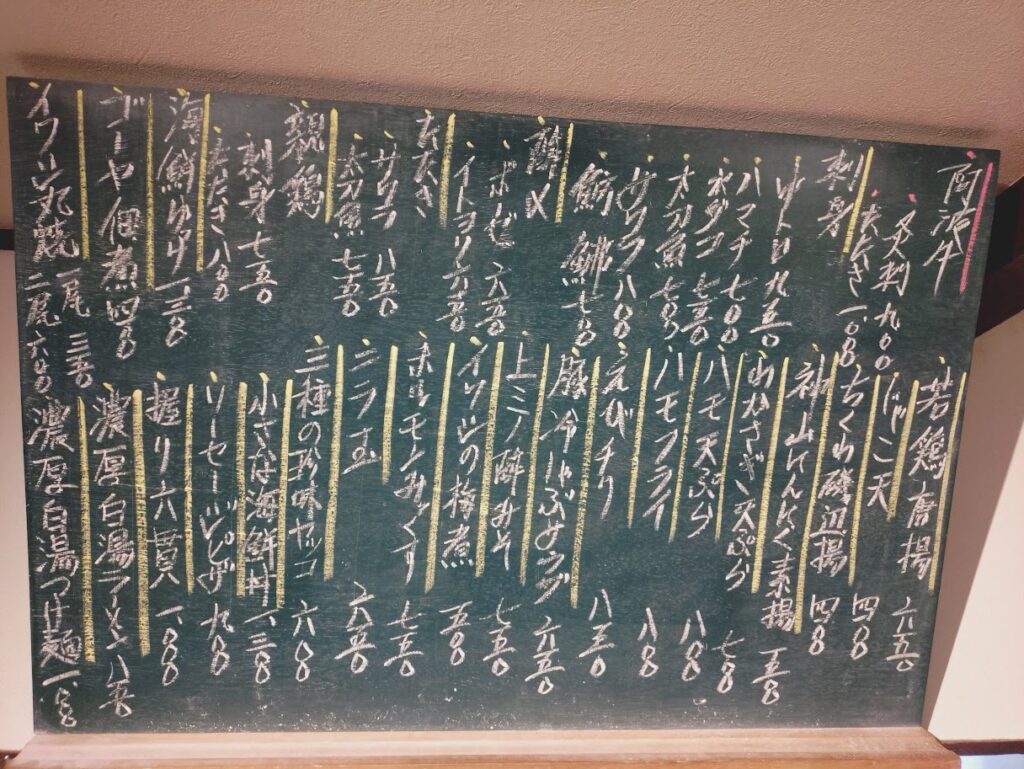 阿波牛
又刺 九〇〇
たたき 一、〇〇〇
刺身
ゆトロ 九五〇
ハマチ 七〇〇
水ダコ 七五〇
太刀魚 七〇〇
サワラ 八〇〇
鯨 七〇〇
酢〆
ボゼ 六五〇
イトヨリ 六五〇
たたき
サワラ 八五〇
太刀魚 七五〇
親鶏
刺身 七五〇
たたき 八〇〇
海鮮ゆっけ 一、三〇〇
ゴーヤ佃煮 四〇〇
イワシ丸焼 一尾 三五〇
二尾 六〇〇
若鶏唐揚 六五〇
じゃこ天
ちくわ磯辺揚 四〇〇
神山にんにく素揚 四〇〇
わかさぎ天ぷら 七〇〇
ハモ天ぷら 八〇〇
ハモフライ 八〇〇
えびチリ 八五〇
豚冷しゃぶサラダ 六五〇
上ミノ酢みそ 七五〇
イワシの梅煮 五〇〇
ホルモンみそくす 七五〇
ニラ玉 六五〇
三種の珍味ヤッコ 六〇〇
小さな海鮮丼 一、三〇〇
ソーセージピザ 九〇〇
握り六貫 一、八〇〇
濃厚白湯ラーメン 八五〇
濃厚白湯つけ麺 一、〇〇〇